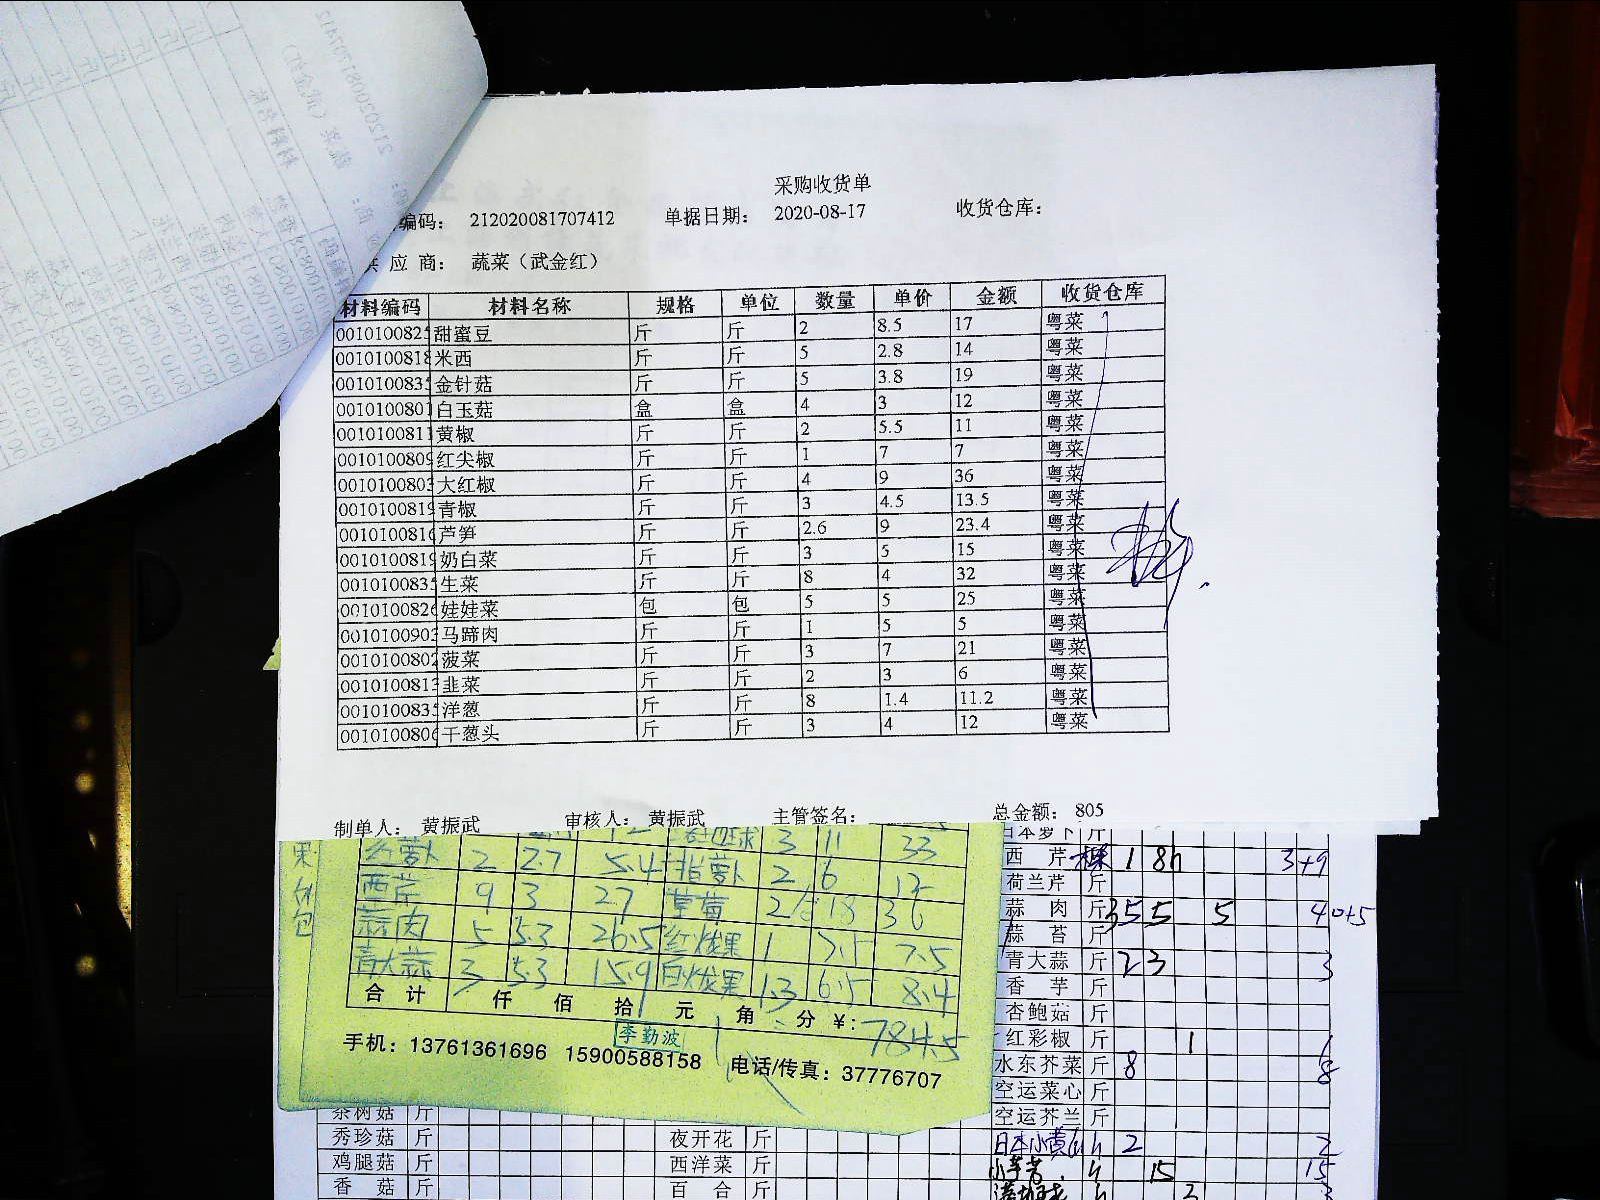 采购收货单
编码： 212020081707412 单据日期： 2020-08-17 收货仓库：
供应商： 蔬菜（武金红）
材料编码 材料名称 规格 单位 数量 单价 金额 收货仓库
001010082 甜蜜豆 斤 斤 2 8.5 17 粤菜
0010100818 米西 斤 斤 5 2.8 14 粤菜
001010083 金针菇 斤 斤 5 3.8 19 粤菜
001010080 白玉菇 盒 盒 4 3 12 粤菜
001010081 黄椒 斤 斤 2 5.5 11 粤菜
0010100809 红尖椒 斤 斤 1 7 7 粤菜
0010100803 大红椒 斤 斤 4 9 36 粤菜
0010100819 青椒 斤 斤 3 4.5 13.5 粤菜
001010081 芦笋 斤 斤 2.6 9 23.4 粤菜
0010100819 奶白菜 斤 斤 3 5 15 粤菜
001010083 生菜 斤 斤 8 4 32 粤菜
001010082 娃娃菜 包 包 5 5 25 粤菜
001010090 马蹄肉 斤 斤 1 5 5 粤菜
0010100802 菠菜 斤 斤 3 7 21 粤菜
001010081 韭菜 斤 斤 2 3 6 粤菜
001010083 洋葱 斤 斤 8 1.4 11.2 粤菜
001010080 干葱头 斤 斤 3 4 12 粤菜
制单人： 黄振武 审核人： 黄振武 主管签名： 总金额： 805
3 11 33
红萝卜 2 2.7 5.4 指萝卜 2 6 12
西芹 9 3 27 草莓 2 18 36
蒜肉 5 5.3 26.5 红火龙果 1 7.5 7.5
青大蒜 3 5.3 15.9 白火龙果 1.3 6.5 8.4
合计 仟 佰 拾 元 角 分 ¥: 784.5
李勤波
手机：13761361696 15900588158 电话/传真：37776707
日本萝卜 斤
西芹 棵 1 8h 3+9
荷兰芹 斤
蒜肉 斤 35 5 5 40+5
蒜苔 斤
青大蒜 斤 2 3 3
香芋 斤
杏鲍菇 斤
红彩椒 斤 1 1
水东芥菜 斤 8 8
空运菜心 斤
空运芥兰 斤
茶树菇 斤
秀珍菇 斤 夜开花 斤 日本小黄瓜 h 2 2
鸡腿菇 斤 西洋菜 斤 小芋艿 h 15 15
香菇 斤 百合 斤